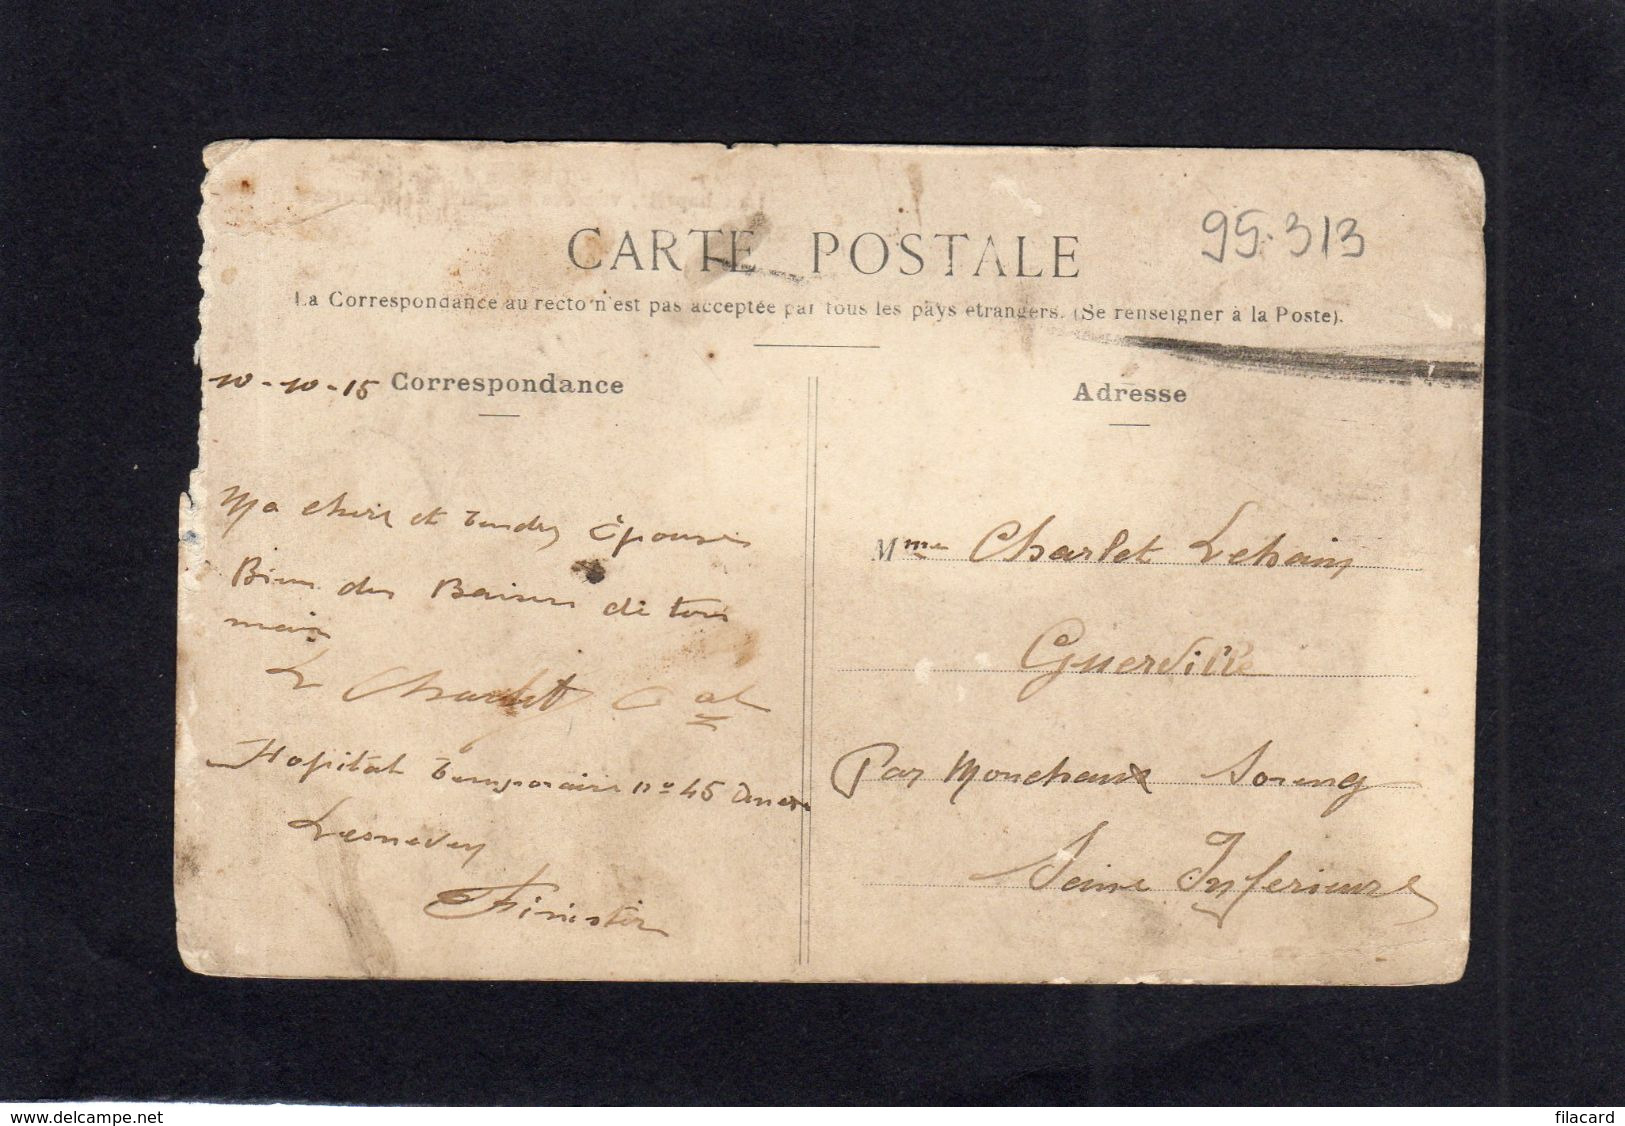 95.313
CARTE POSTALE
La Correspondance au recto n'est pas acceptée par tous les pays étrangers. (Se renseigner à la Poste).
10-10-15 Correspondance
Ma chere et Epouse
Bien des Baisers de ton
L Charlet Cal
Hopital Temporaire no 45
Lesneven
Finister
Adresse
Mme Charlet Lehain
Guerville
Par Monchaux Soreng
Seine Inferieure
www.delcampe.net
filacard